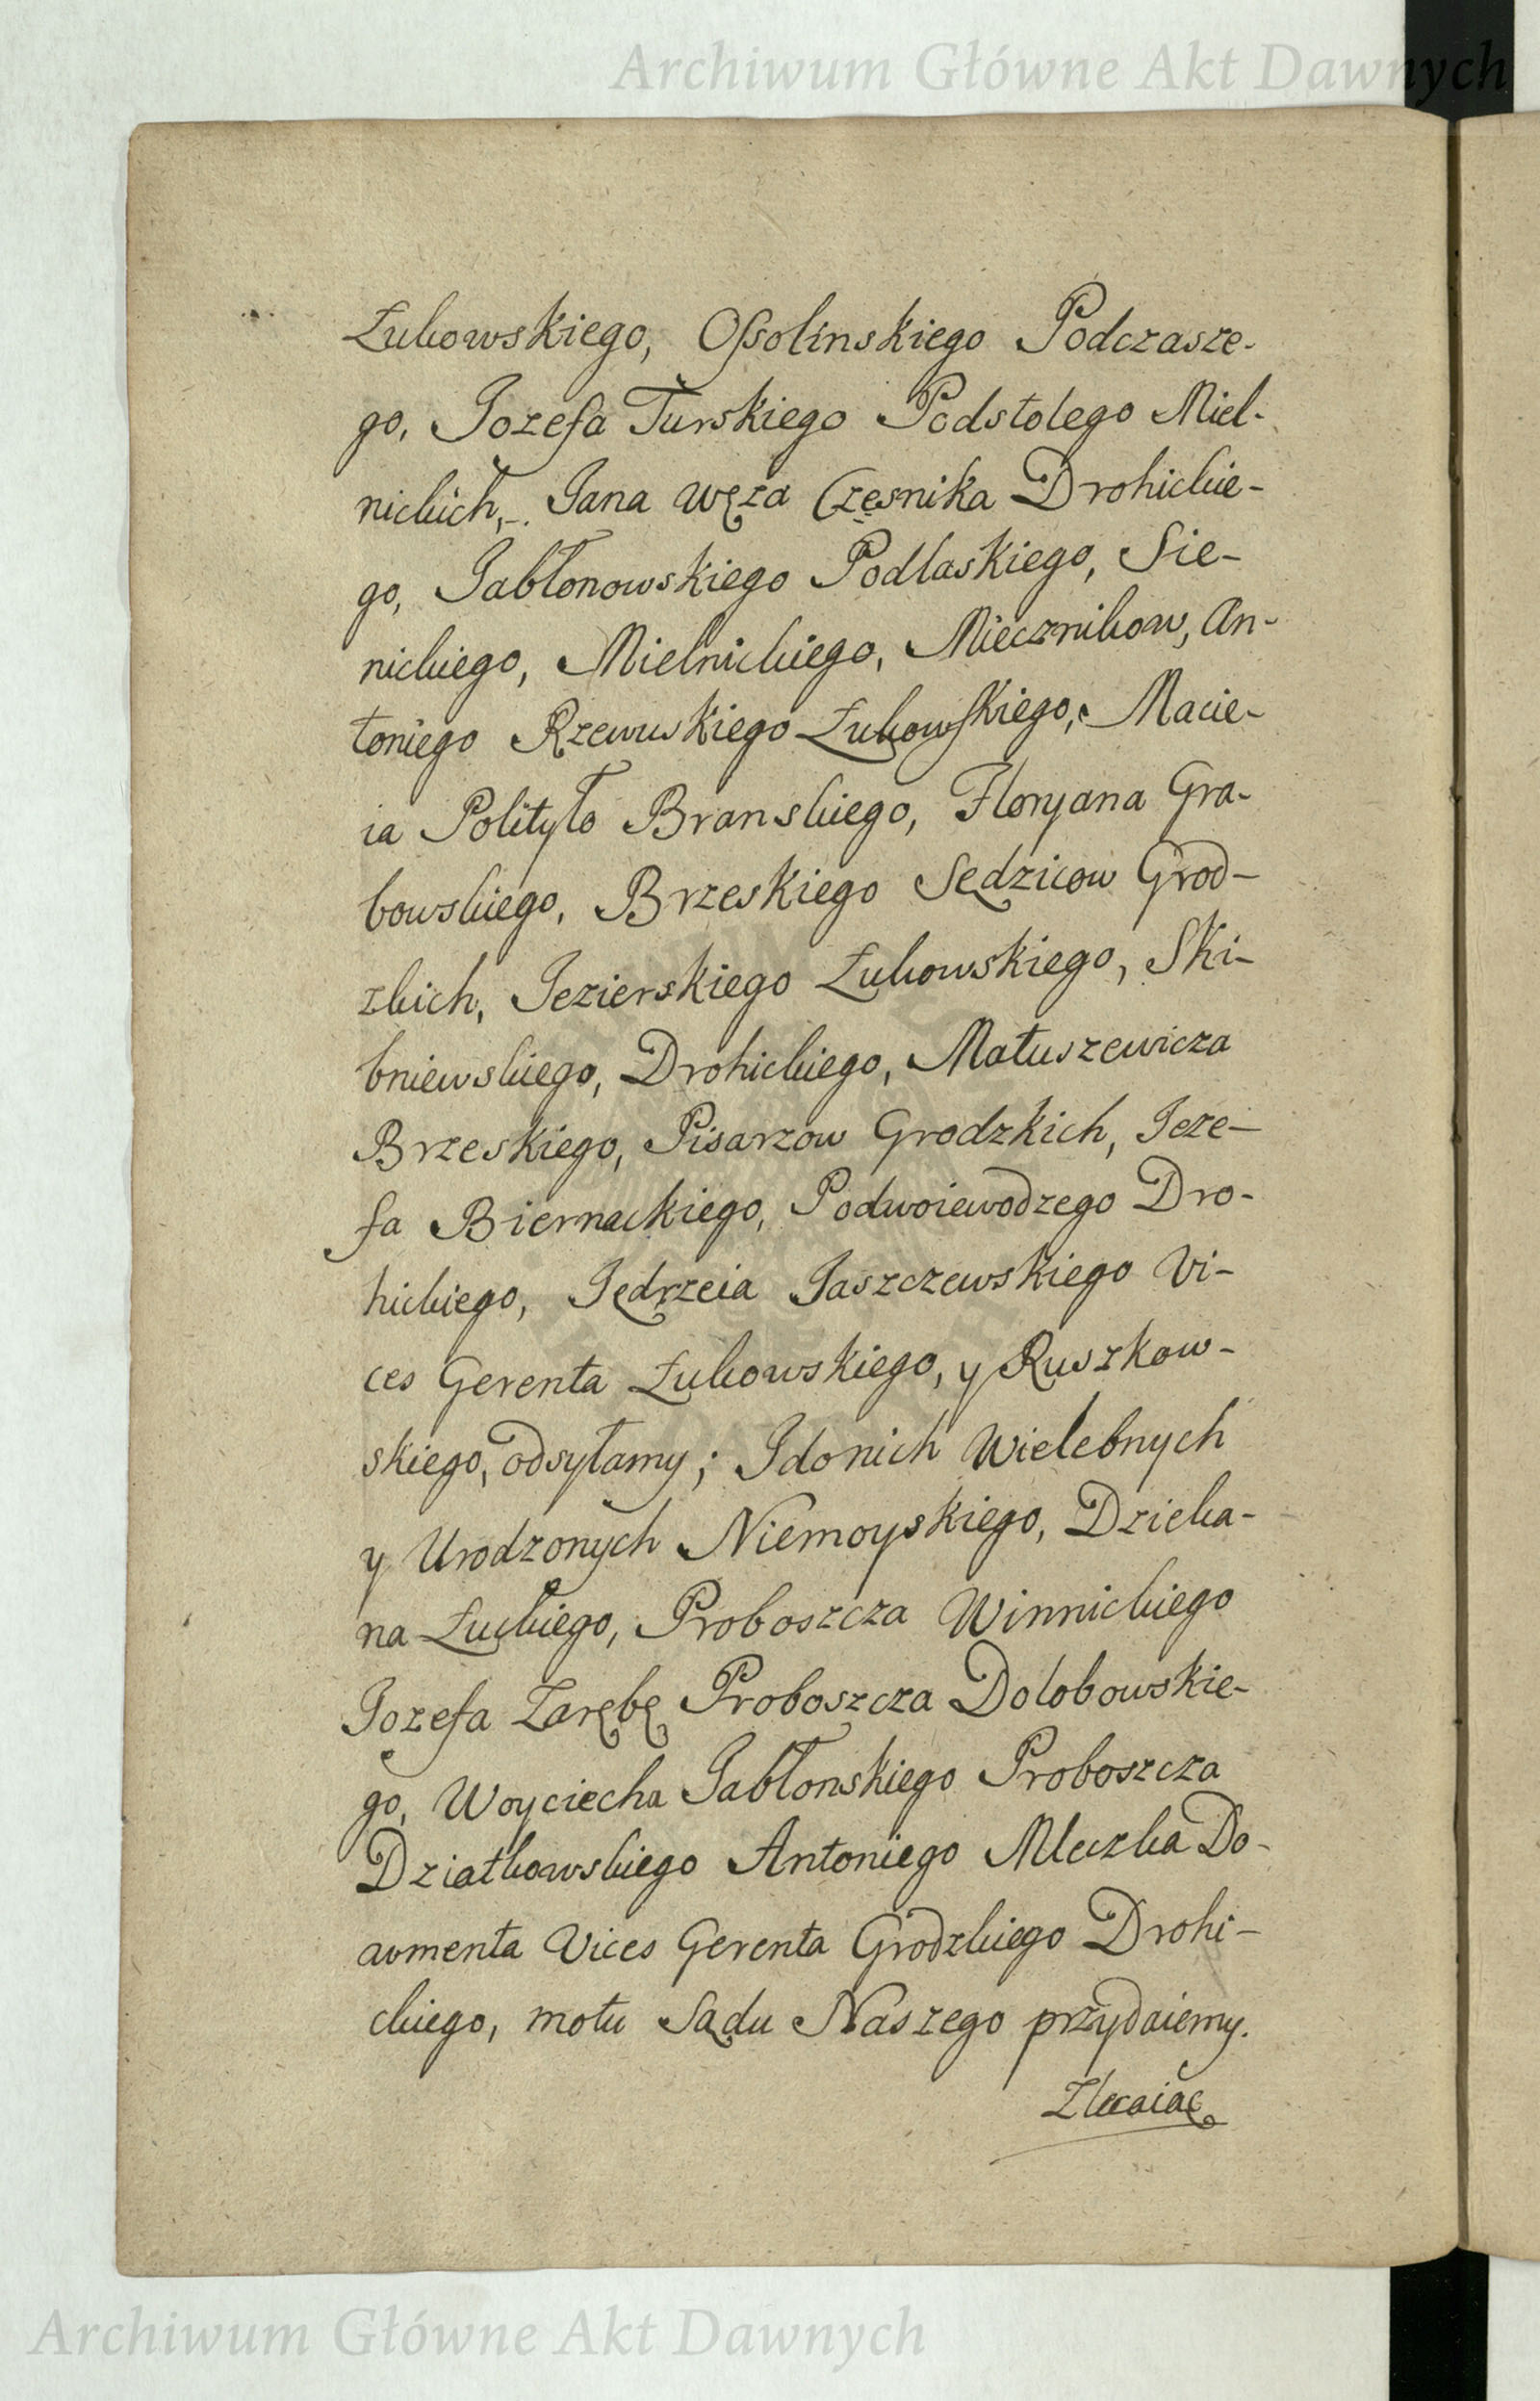 Archiwum Główne Akt Dawnych
Łukowskiego, Ossolinskiego Podczasze-
go, Jozefa Turskiego Podstolego Miel-
nickich, Jana Węża Cześnika Drohickie-
go, Jabłonowskiego Podlaskiego, Sie-
nickiego, Mielnickiego, Miecznikow, An-
toniego Rzewuskiego Łukowskiego, Macie-
ia Polityło Branskiego, Floryana Gra-
bowskiego, Brzeskiego Sędzicow Grod-
zkich, Jezierskiego Łukowskiego, Ski-
bniewskiego, Drohickiego, Matuszewicza
Brzeskiego, Pisarzow Grodzkich, Jeze-
fa Biernackiego, Podwoiewodzego Dro-
hickiego, Jędrzeia Jaszczewskiego Vi-
ces Gerenta Łukowskiego, y Ruszkow-
skiego, odsyłamy; Jdonich Wielebnych
y Urodzonych Niemoyskiego, Dzieka-
na Łuckiego, Proboszcza Winnickiego
Jozefa Zarębę Proboszcza Dolobowskie-
go, Woyciecha Jabłonskiego Proboszcza
Dziatkowskiego Antoniego Mleczka Do-
aomenta Vices Gerenta Grodzkiego Drohi-
ckiego, motu Sądu Naszego przydaiemy.
Zlecaiąc
Archiwum Główne Akt Dawnych